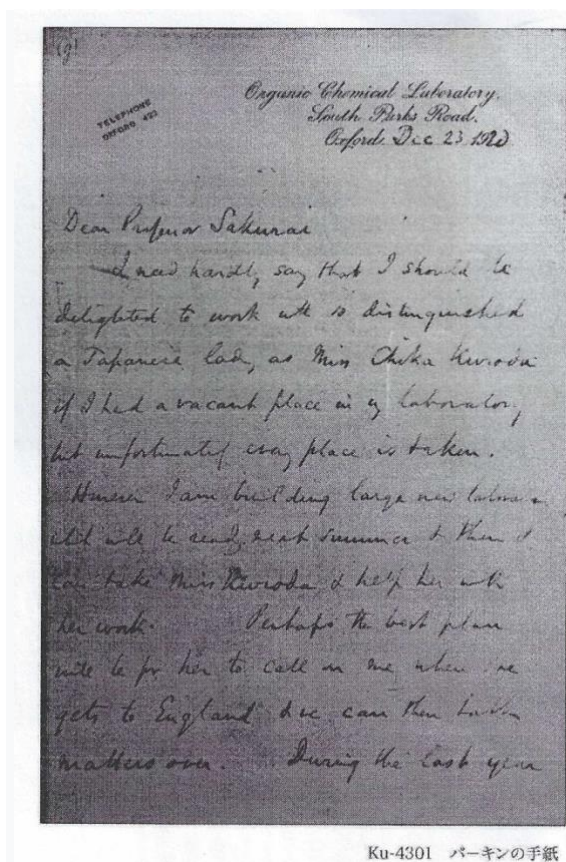 (9)
TELEPHONE
OXFORD 423
Organic Chemical Laboratory.
South Parks Road.
Oxford. Dec 23 1920
Dear Professor Sakurai
I need hardly say that I should be
delighted to work with so distinguished
a Japanese lady as Miss Chika Kuroda
if I had a vacant place in my laboratory
but unfortunately every place is taken.
However I am building large new
will be ready next summer & then I
can take Miss Kuroda & help her with
her work. Perhaps the best plan
will be for her to call on me when she
gets to England & we can then talk
matters over. During the last year
Ku-4301 パーキンの手紙